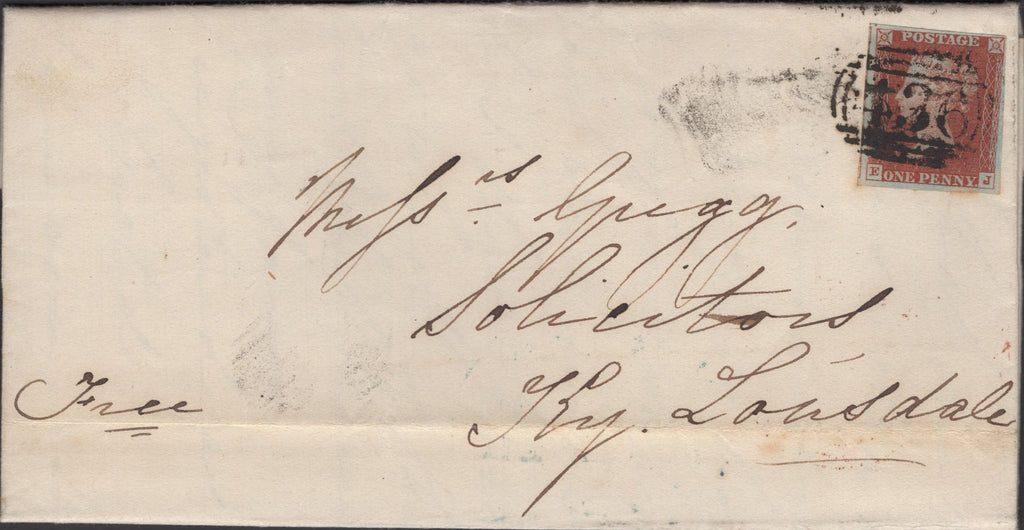 POSTAGE
436
E ONE PENNY J
Messrs Gregg,
Solicitors
Ky. Lonsdale
Free